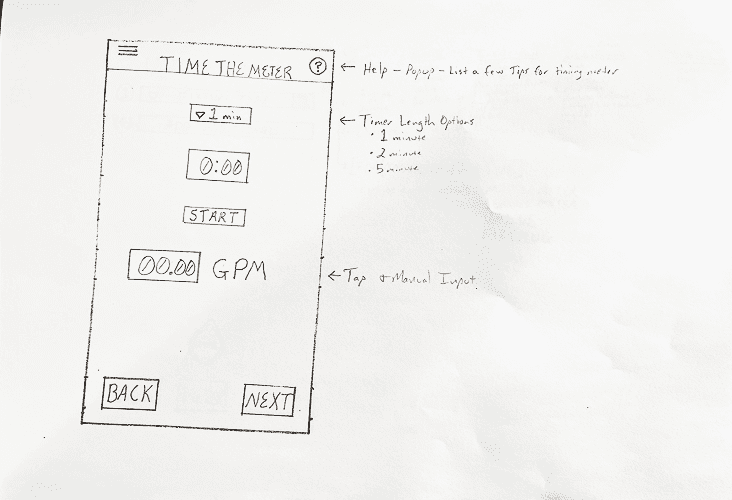 TIME THE METER ?
← Help - Popup - List a few Tips for timing meter
▽ 1 min
← Timer Length Options
• 1 minute
• 2 minute
• 5 minute
0:00
START
00.00 GPM
← Tap + Manual Input
BACK NEXT